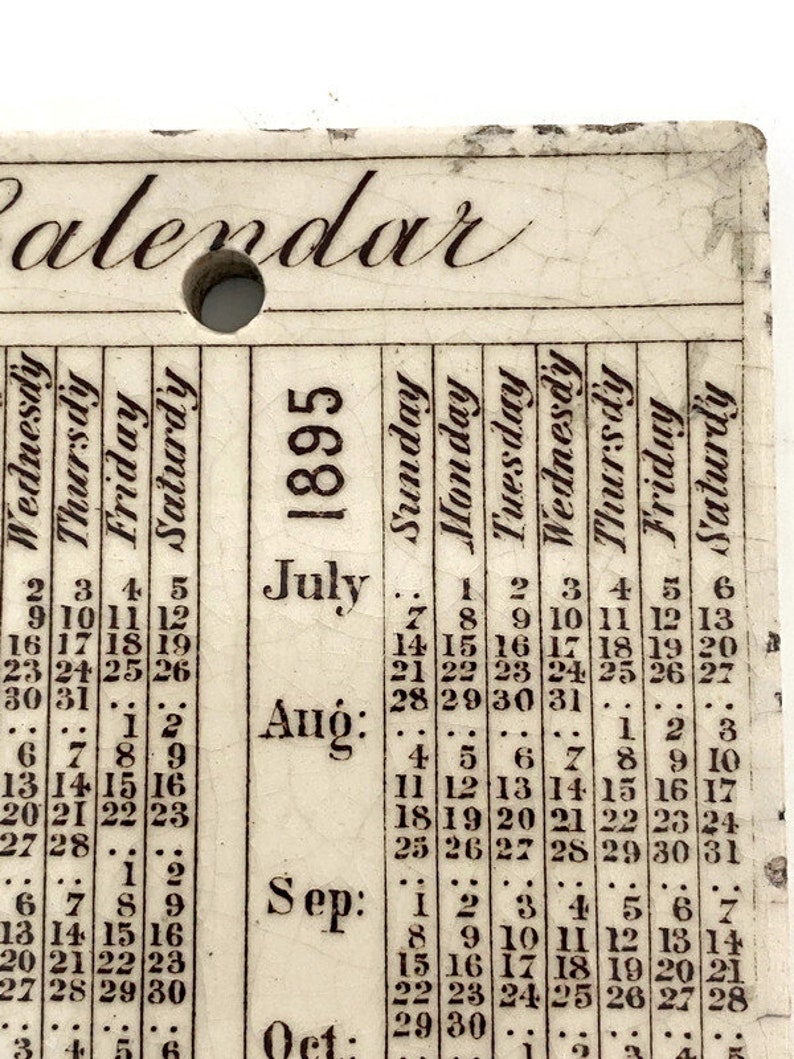 Calendar
Wednesd'y Thursd'y Friday Saturd'y
1895 Sunday Monday Tuesday Wednesd'y Thursd'y Friday Saturd'y
2 3 4 5 July .. 1 2 3 4 5 6
9 10 11 12 7 8 9 10 11 12 13
16 17 18 19 14 15 16 17 18 19 20
23 24 25 26 21 22 23 24 25 26 27
30 31 .. .. 28 29 30 31 .. .. ..
.. .. 1 2 Aug: .. .. .. .. 1 2 3
6 7 8 9 4 5 6 7 8 9 10
13 14 15 16 11 12 13 14 15 16 17
20 21 22 23 18 19 20 21 22 23 24
27 28 .. .. 25 26 27 28 29 30 31
.. .. 1 2 .. .. .. .. .. .. ..
6 7 8 9 Sep: 1 2 3 4 5 6 7
13 14 15 16 8 9 10 11 12 13 14
20 21 22 23 15 16 17 18 19 20 21
27 28 29 30 22 23 24 25 26 27 28
.. .. .. .. 29 30 .. .. .. .. ..
3 4 5 6 Oct: .. .. 1 2 3 4 5